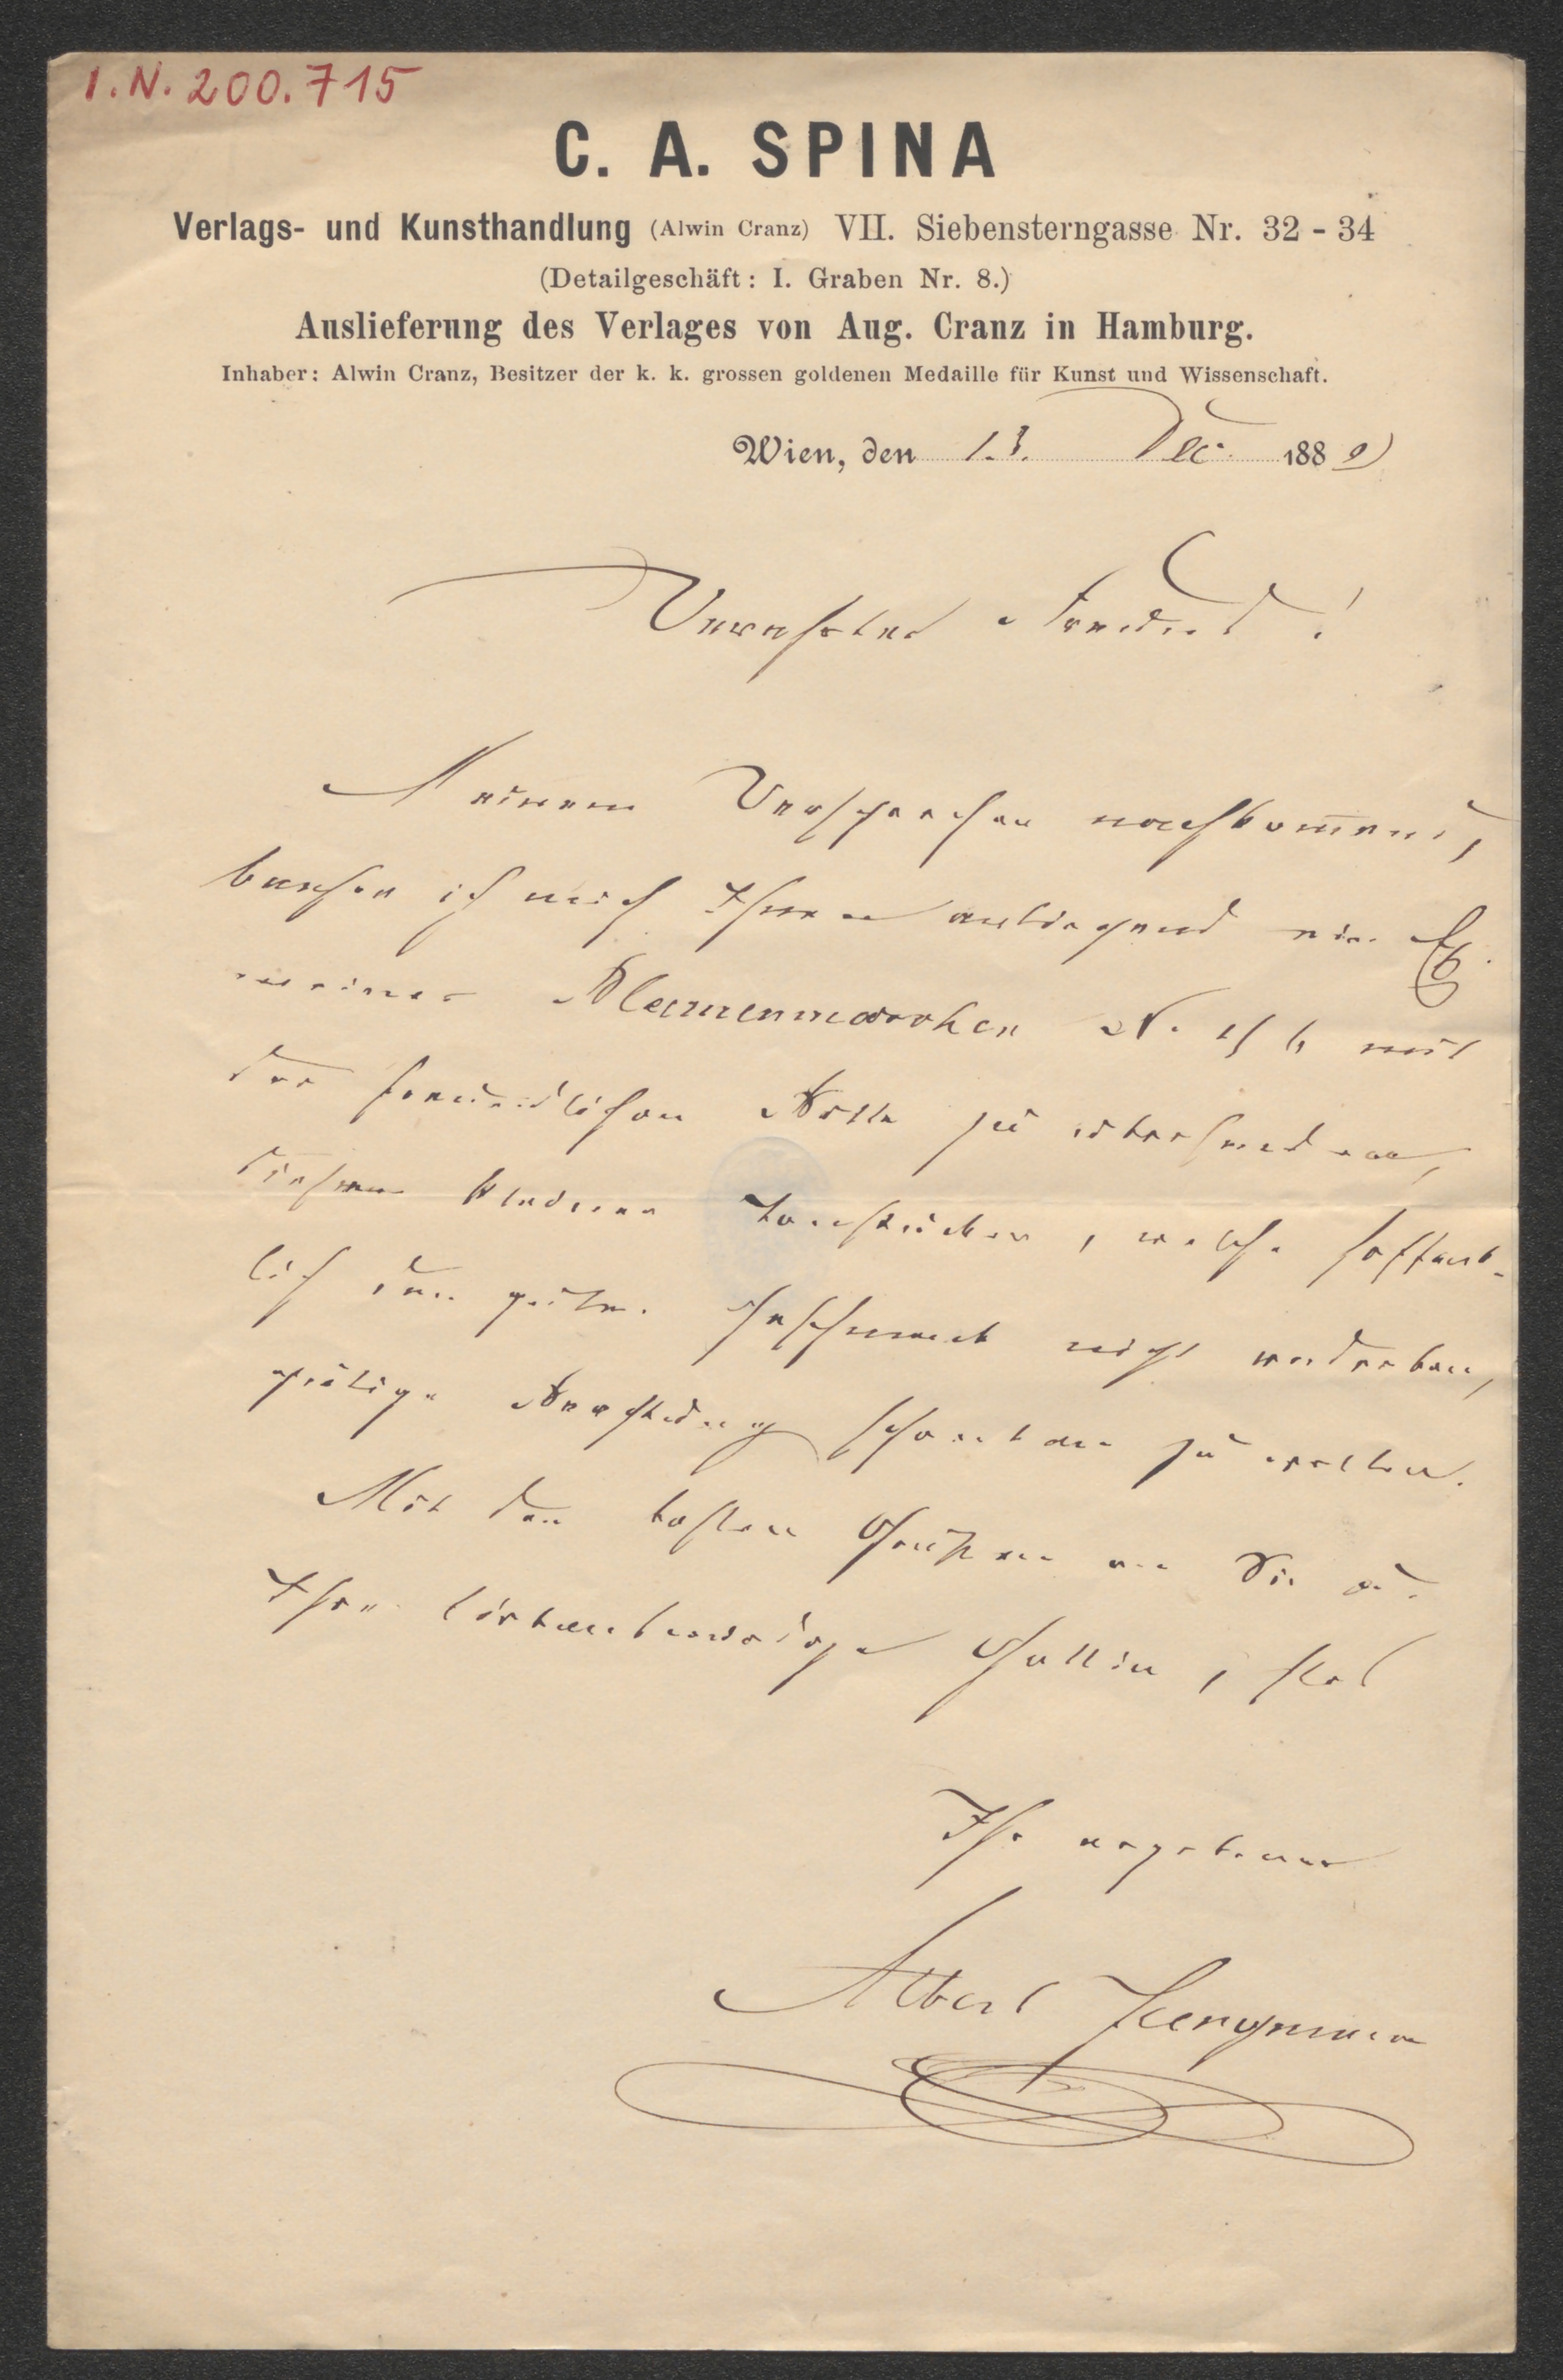 I.N. 200.715
C. A. SPINA
Verlags- und Kunsthandlung (Alwin Cranz) VII. Siebensterngasse Nr. 32 - 34
(Detailgeschäft: I. Graben Nr. 8.)
Auslieferung des Verlages von Aug. Cranz in Hamburg.
Inhaber: Alwin Cranz, Besitzer der k. k. grossen goldenen Medaille für Kunst und Wissenschaft.
Wien, den 13. Dec. 188
Verehrter Freund!
Meinem Versprechen nachkom̅end,
beehre ich mich Ihnen anliegend ein Ex.
meiner Blumenmärchen N. 1/6 mit
der freundlichen Bitte zu übersenden,
diesen kleinen Tonstücken, welche hoffent-
lich den guten Geschmack nicht verderben,
gütige Beachtung schenken zu wollen.
Mit den besten Grüßen an Sie u.
Ihre liebenswürdige Gattin, stets
Ihr ergebener
Albert Jungmann